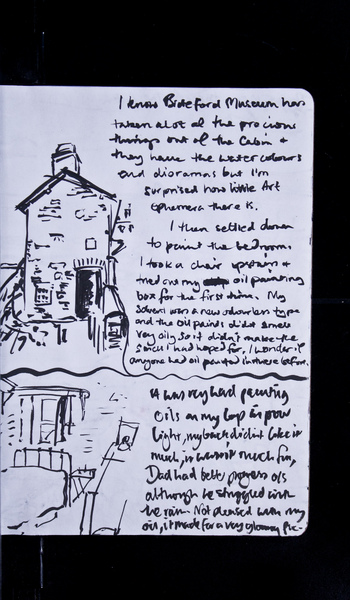 I know Bideford Museum has
taken alot of the precious
things out of the Cabin &
they have the watercolours
and dioramas but I'm
surprised how little Art
Ephemera there is.
I then settled down
to paint the bedroom.
I took a chair upstairs &
tried out my oil painting
box for the first time. My
solvent was a new odourless type
and the oil paints didnt smell
very oily so it didn't make the
smell I had hoped for, I wonder if
anyone had oil painted in there before.
It was very hard painting
oils on my lap in poor
light, my back didnt like it
much, it wasn't much fun,
Dad had better progress o/s
although he struggled with
the rain. Not pleased with my
oil, it made for a very gloomy pic-